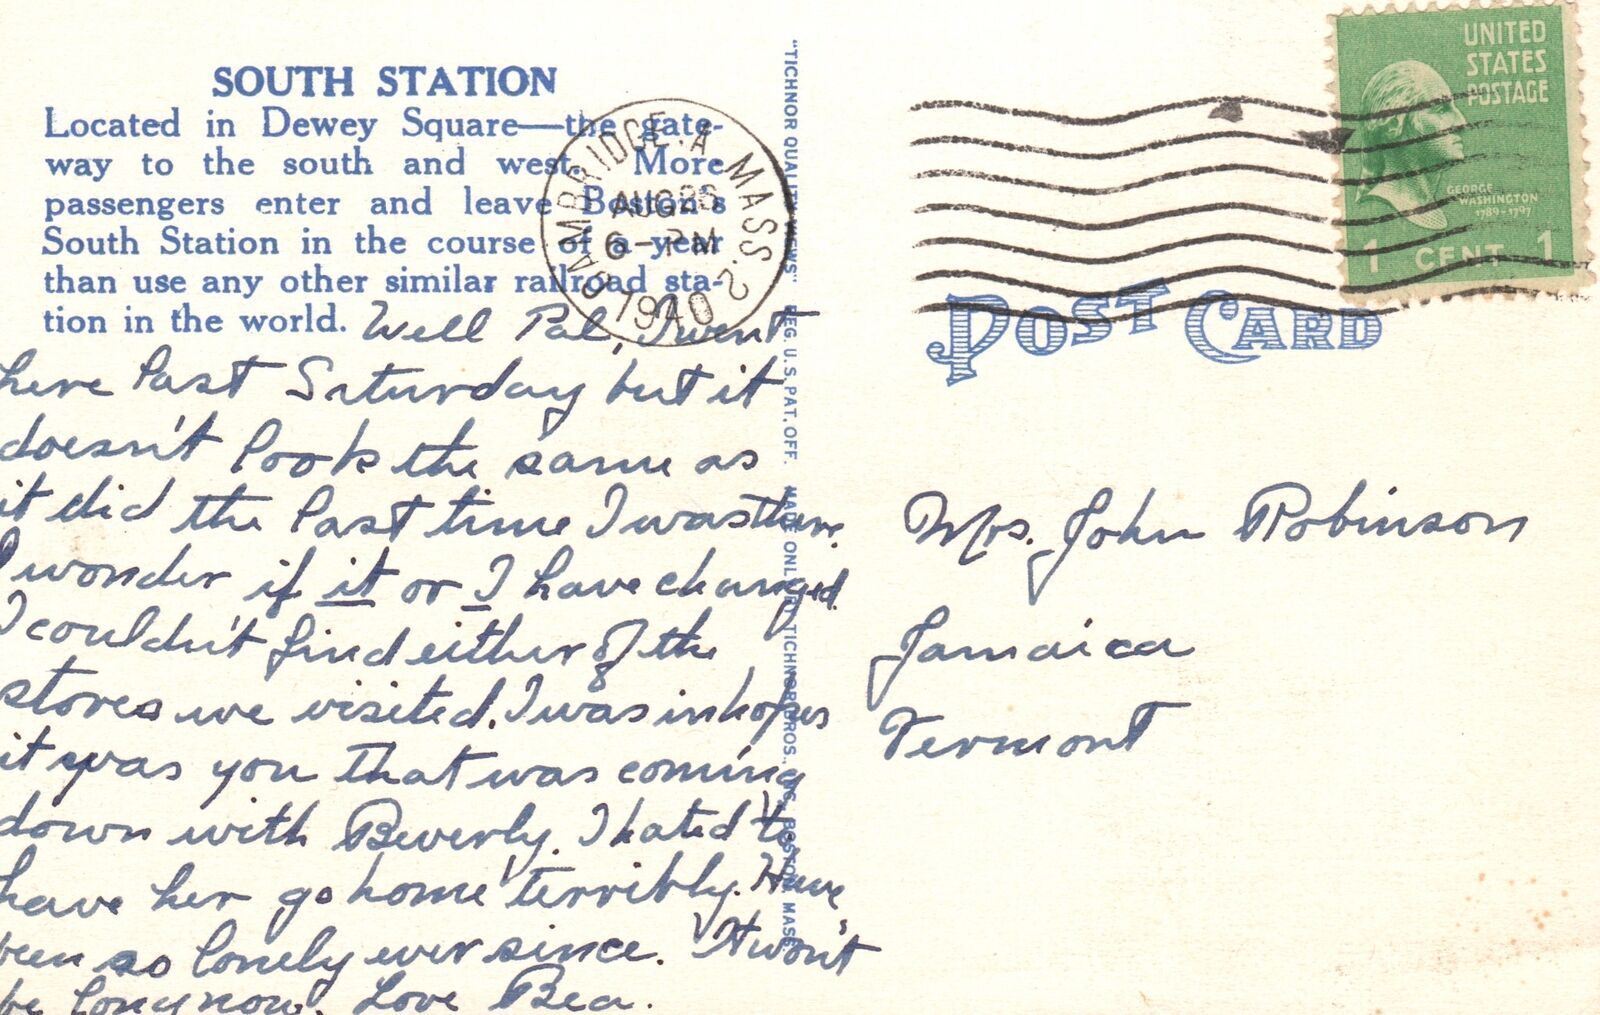 SOUTH STATION
Located in Dewey Square—the gate-
way to the south and west. More
passengers enter and leave Boston's
South Station in the course of a year
than use any other similar railroad sta-
tion in the world.
Well Pal, I went
here last Saturday but it
doesn't look the same as
it did the last time I was there.
I wonder if it or I have changed.
I couldn't find either of the
stores we visited. I was in hopes
it was you that was coming
down with Beverly. I hated to
have her go home terribly. Have
been so lonely ever since. "It won't"
be long now. Love Bea.
CAMBRIDGE. A. MASS. 2
AUG 26
6 - PM
1940
"TICHNOR QUALITY VIEWS" REG. U.S. PAT. OFF. MADE ONLY BY TICHNOR BROS., INC., BOSTON, MASS.
UNITED
STATES
POSTAGE
GEORGE
WASHINGTON
1789-1797
1 CENT 1
POST CARD
Mrs. John Robinson
Jamaica
Vermont